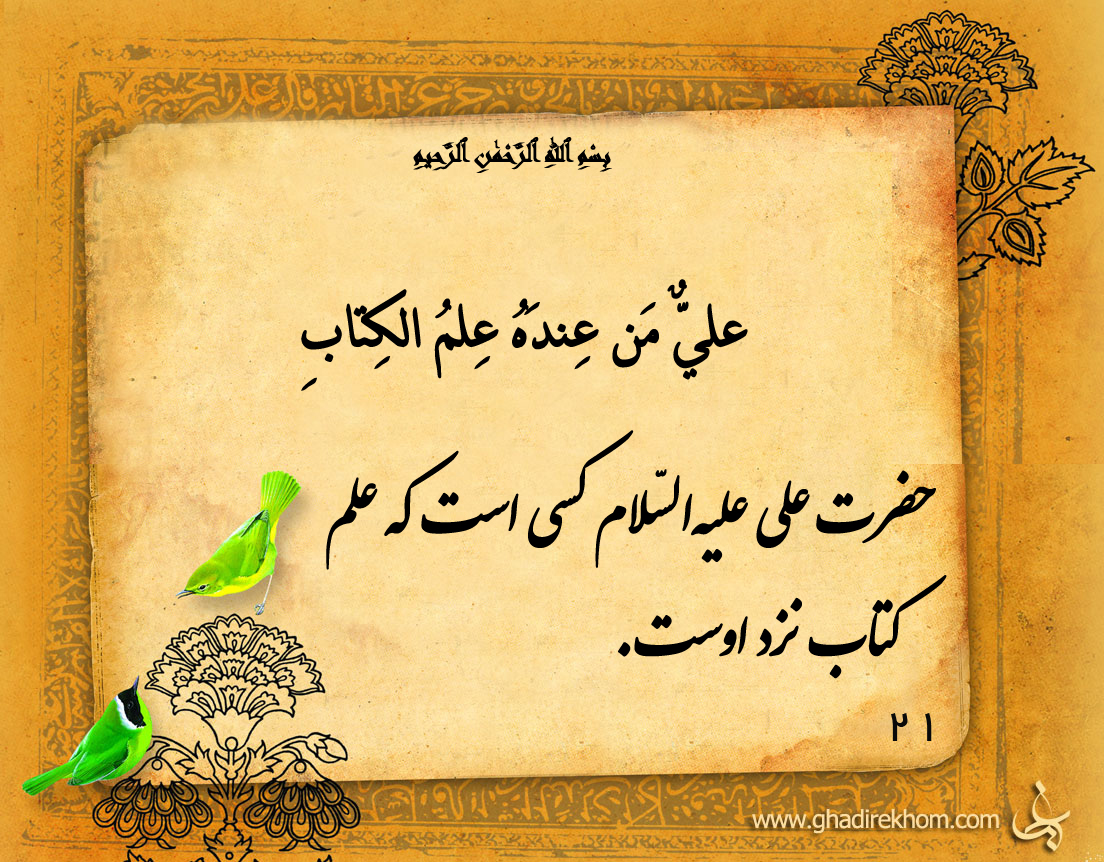 بِسْمِ ٱللَّهِ ٱلرَّحْمَٰنِ ٱلرَّحِيمِ
عليٌّ مَن عِندَهُ عِلمُ الكِتابِ
حضرت علی علیه‌السّلام کسی است که علم
کتاب نزد اوست.
۲۱
www.ghadirekhom.com